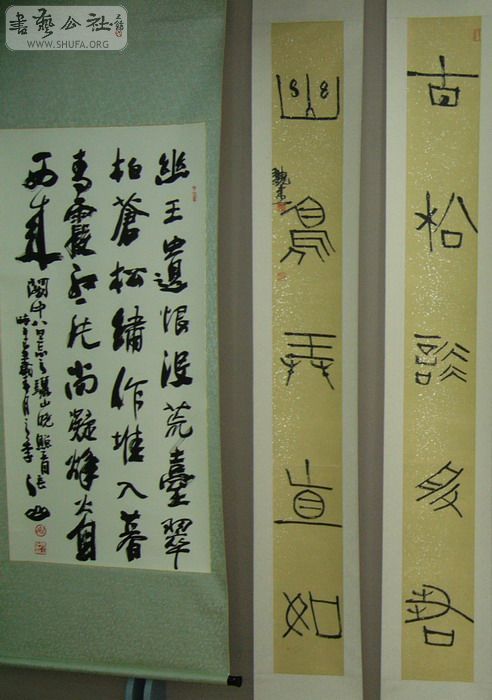 書藝公社
WWW.SHUFA.ORG
古松談般若
幽鳥弄真如
幽王遺恨没荒臺翠
柏蒼松繡作堆入暮
青霞紅一片尚疑烽火自
西来
關中八景之一驪山晚照